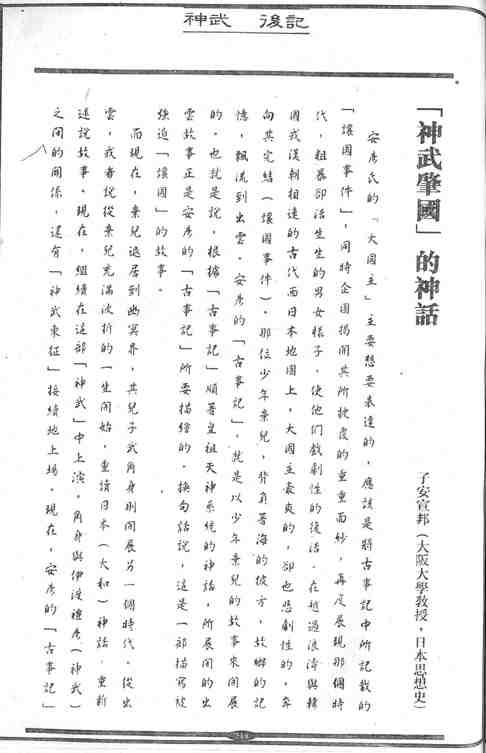 神武 後記
「神武肇國」的神話
子安宣邦(大阪大學教授,日本思想史)
安彥氏的「大國主」主要想要表達的,應該是將古事記中所記載的
「讓國事件」,同時企圖揭開其所披覆的重重面紗,再度展現那個時
代,粗暴卻活生生的男女樣子,使他们戲劇性的復活。在越過浪濤與韓
國或漢朝相連的古代西日本地圖上,大國主豪爽的,卻也悲劇性的,奔
向其完結(讓國事件)。那位少年棄兒,背負著海的彼方,故鄉的記
憶,飄流到出雲。安彥的「古事記」,就是以少年棄兒的故事來開展
的。也就是說,根據「古事記」順著皇祖天神系統的神話,所展開的出
雲故事正是安彥的「古事記」所要描繪的。換句話說,這是一部描寫被
強迫「讓國」的故事。
而現在,棄兒退居到幽冥界,其兒子武角身則開展另一個時代。從出
雲,或者說從棄兒充滿波折的一生開始,重讀日本(大和)神話,重新
述說故事。現在,繼續在這部「神武」中上演。角身與伊波禮彥(神武)
之间的關係,還有「神武東征」接續地上場。現在,安彥的「古事記」